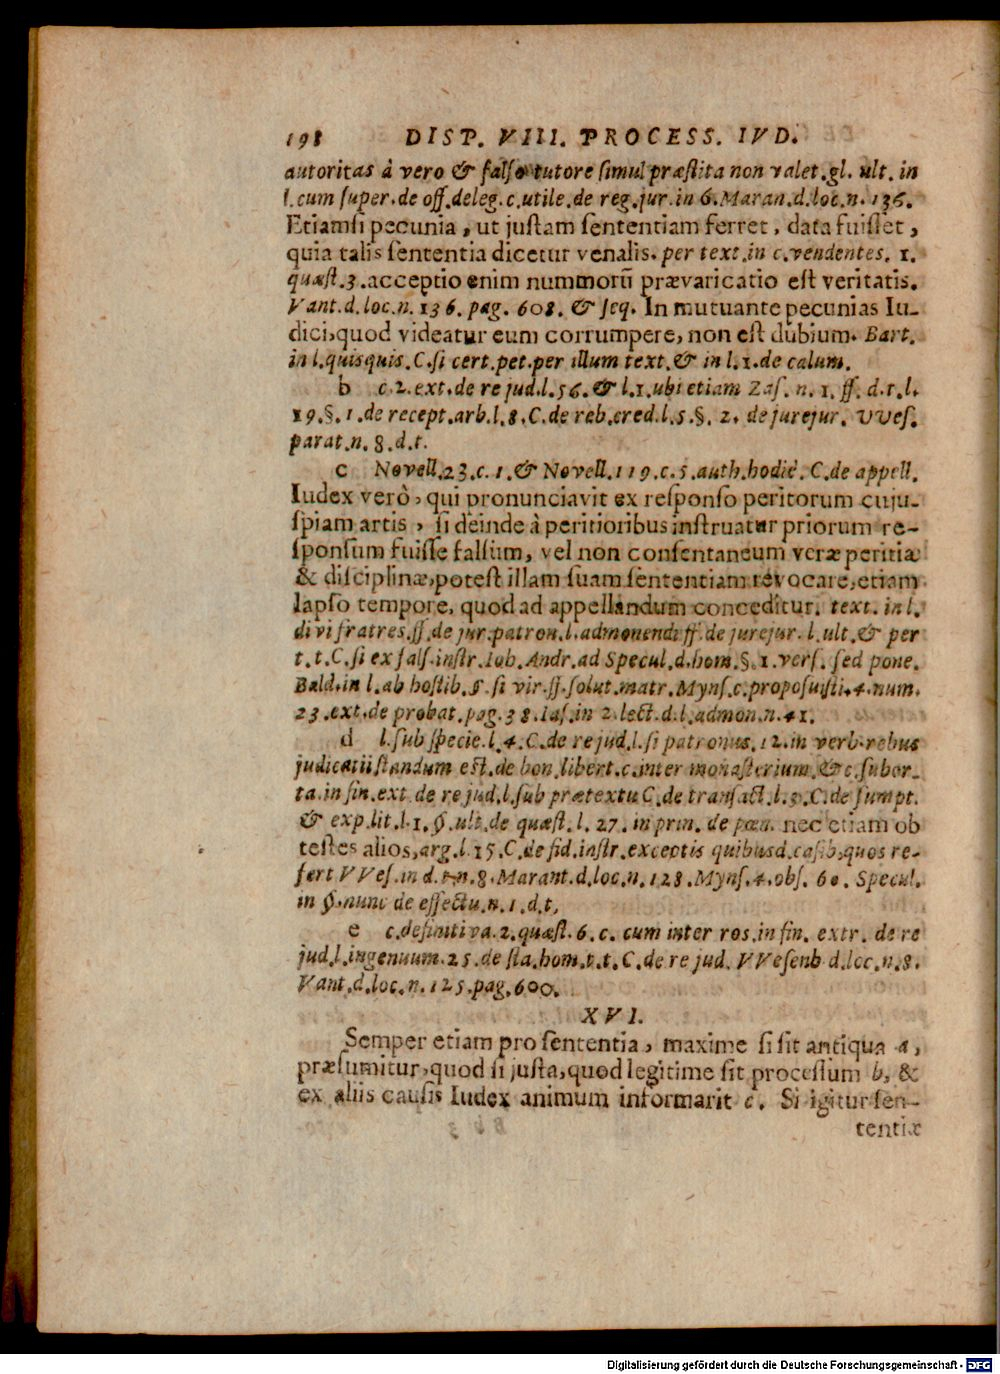 198 DISP. VIII. PROCESS. IVD.
autoritas à vero & falso tutore simul præstita non valet. gl. ult. in
l. cum super. de off. deleg. c. utile. de reg. jur. in 6. Maran. d. loc. n. 136.
Etiamsi pecunia, ut justam sententiam ferret, data fuisset,
quia talis sententia dicetur venalis. per text. in c. vendentes. 1.
quæst. 3. acceptio enim nummorũ prævaricatio est veritatis.
Vant. d. loc. n. 136. pag. 608. & seq. In mutuante pecunias Iu-
dici, quod videatur eum corrumpere, non est dubium. Bart.
in l. quisquis. C. si cert. pet. per illum text. & in l. 1. de calum.
b c. 2. ext. de re jud. l. 56. & l. 1. ubi etiam Zas. n. 1. ff. d. t. l.
19. §. 1. de recept. arb. l. 8. C. de reb. cred. l. 5. §. 2. de jurejur. VVes.
parat. n. 8. d. t.
c Novell. 23. c. 1. & Novell. 119. c. 5. auth. hodiè. C. de appell.
Iudex verò, qui pronunciavit ex responso peritorum cuju-
spiam artis, si deinde à peritioribus instruatur priorum re-
sponsum fuisse falsum, vel non consentaneum veræ peritiæ
& disciplinæ, potest illam suam sententiam revocare, etiam
lapso tempore, quod ad appellandum conceditur. text. in l.
divi fratres. ff. de jur. patron. l. admonendi ff. de jurejur. l. ult. & per
t. t. C. si ex fals. instr. Ioh. Andr. ad Specul. d. hom. §. 1. vers. sed pone.
Bald. in l. ab hostib. §. si vir. ff. solut. matr. Myns. c. proposuisti. 4. num.
23. ext. de probat. pag. 38. Ias. in 2. lect. d. l. admon. n. 41.
d l. sub specie. l. 4. C. de re jud. l. si patronus. 12. in verb. rebus
judicatis standum est. de bon. libert. c. inter monasterium. & c. subor-
ta. in fin. ext. de re jud. l. sub prætextu C. de transact. l. 3. C. de sumpt.
& exp. lit. l. 1. §. ult. de quæst. l. 27. in prin. de pœn. nec etiam ob
testes alios, arg. l. 15. C. de fid. instr. exceptis quibusd. casib. quos re-
fert VVes. in d. t. n. 8. Marant. d. loc. n. 128. Myns. 4. obs. 60. Specul.
in §. nunc de effectu. n. 1. d. t.
e c. definitiva. 2. quæst. 6. c. cum inter vos. in fin. extr. de re
jud. l. ingenuum. 25. de sta. hom. t. t. C. de re jud. VVesenb d. loc. n. 8.
Vant. d. loc. n. 125. pag. 600.
XVI.
Semper etiam pro sententia, maxime si sit antiqua a,
præsumitur, quod sit justa, quod legitime sit processum b, &
ex aliis causis Iudex animum informarit c. Si igitur sen-
tentiæ
Digitalisierung gefördert durch die Deutsche Forschungsgemeinschaft - DFG